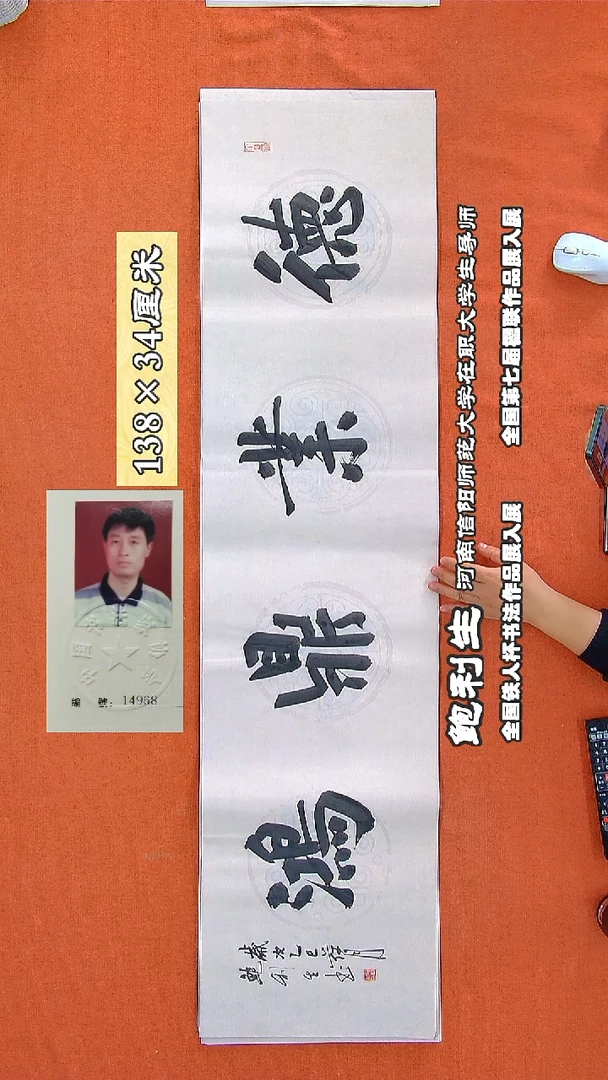 138×34厘米
编 号: 14968
德業鼎鴻
歲次乙巳 月
鮑利生書
鲍利生 河南信阳师范大学在职大学生导师
全国铁人杯书法作品展入展 全国第七届楹联作品展入展